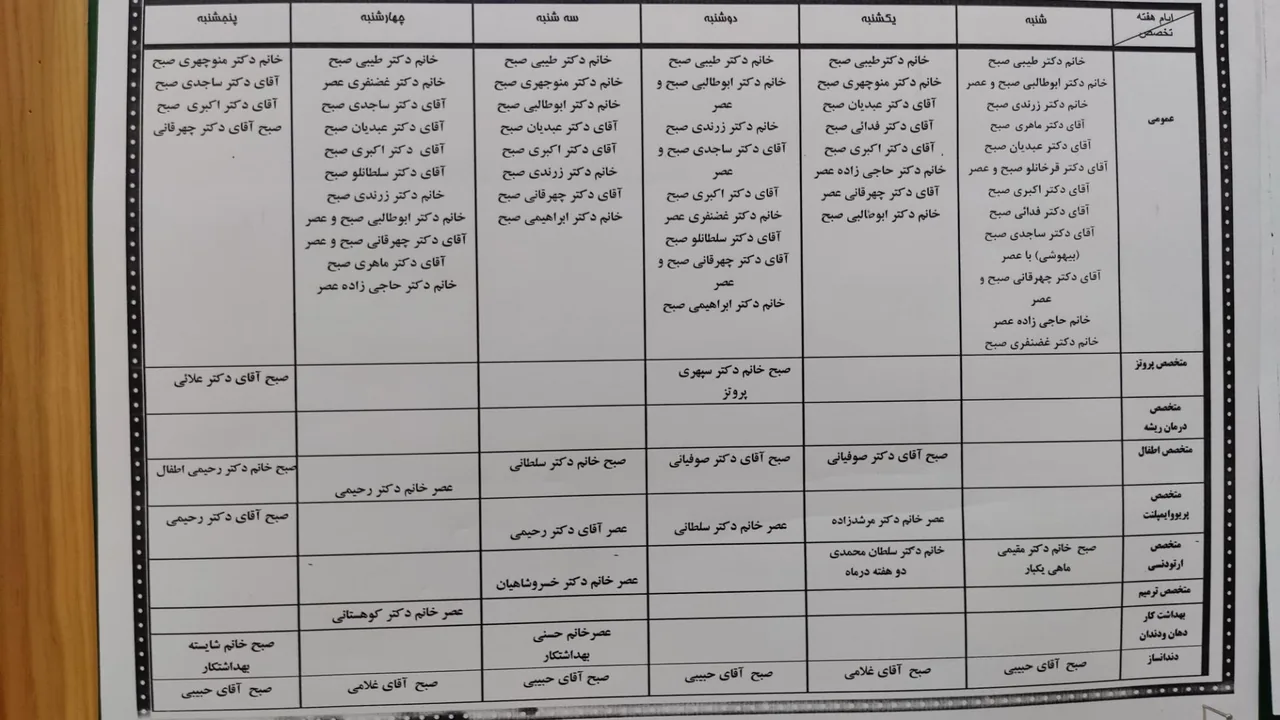 ایام هفته
تخصص
شنبه
یکشنبه
دوشنبه
سه شنبه
چهارشنبه
پنجشنبه
عمومی
خانم دکتر طیبی صبح
خانم دکتر ابوطالبی صبح و عصر
خانم دکتر زرندی صبح
آقای دکتر ماهری صبح
آقای دکتر عبدیان صبح
آقای دکتر قرخانلو صبح و عصر
آقای دکتر اکبری صبح
آقای دکتر فدائی صبح
آقای دکتر ساجدی صبح
(بیهوشی) یا عصر
آقای دکتر چهرقانی صبح و
عصر
خانم حاجی زاده عصر
خانم دکتر غضنفری صبح
خانم دکترطیبی صبح
خانم دکتر منوچهری صبح
آقای دکتر عبدیان صبح
آقای دکتر فدائی صبح
آقای دکتر اکبری صبح
خانم دکتر حاجی زاده عصر
آقای دکتر چهرقانی عصر
خانم دکتر ابوطالبی صبح
خانم دکتر طیبی صبح
خانم دکتر ابوطالبی صبح و
عصر
خانم دکتر زرندی صبح
آقای دکتر ساجدی صبح و
عصر
آقای دکتر اکبری صبح
خانم دکتر غضنفری عصر
آقای دکتر سلطانلو صبح
آقای دکتر چهرقانی صبح و
عصر
خانم دکتر ابراهیمی صبح
خانم دکتر طیبی صبح
خانم دکتر منوچهری صبح
خانم دکتر ابوطالبی صبح
آقای دکتر عبدیان صبح
آقای دکتر اکبری صبح
خانم دکتر زرندی صبح
آقای دکتر چهرقانی صبح
خانم دکتر ابراهیمی صبح
خانم دکتر طیبی صبح
خانم دکتر غضنفری عصر
آقای دکتر ساجدی صبح
آقای دکتر عبدیان صبح
آقای دکتر اکبری صبح
آقای دکتر سلطانلو صبح
خانم دکتر زرندی صبح
خانم دکتر ابوطالبی صبح و عصر
آقای دکتر چهرقانی صبح و عصر
آقای دکتر ماهری صبح
خانم دکتر حاجی زاده عصر
خانم دکتر منوچهری صبح
آقای دکتر ساجدی صبح
آقای دکتر اکبری صبح
صبح آقای دکتر چهرقانی
متخصص پروتز
صبح خانم دکتر سپهری
پروتز
صبح آقای دکتر علائی
متخصص
درمان ریشه
متخصص اطفال
صبح آقای دکتر صوفیانی
صبح آقای دکتر صوفیانی
صبح خانم دکتر سلطانی
عصر خانم دکتر رحیمی
صبح خانم دکتر رحیمی اطفال
متخصص
پریووایمپلنت
عصر خانم دکتر مرشدزاده
عصر خانم دکتر سلطانی
عصر آقای دکتر رحیمی
صبح آقای دکتر رحیمی
متخصص
ارتودنسی
صبح خانم دکتر مقیمی
ماهی یکبار
خانم دکتر سلطان محمدی
دو هفته درماه
عصر خانم دکتر خسروشاهیان
متخصص ترمیم
عصر خانم دکتر کوهستانی
بهداشت کار
دهان ودندان
عصرخانم حسنی
بهداشتکار
صبح خانم شایسته
بهداشتکار
دندانساز
صبح آقای حبیبی
صبح آقای غلامی
صبح آقای حبیبی
صبح آقای حبیبی
صبح آقای غلامی
صبح آقای حبیبی